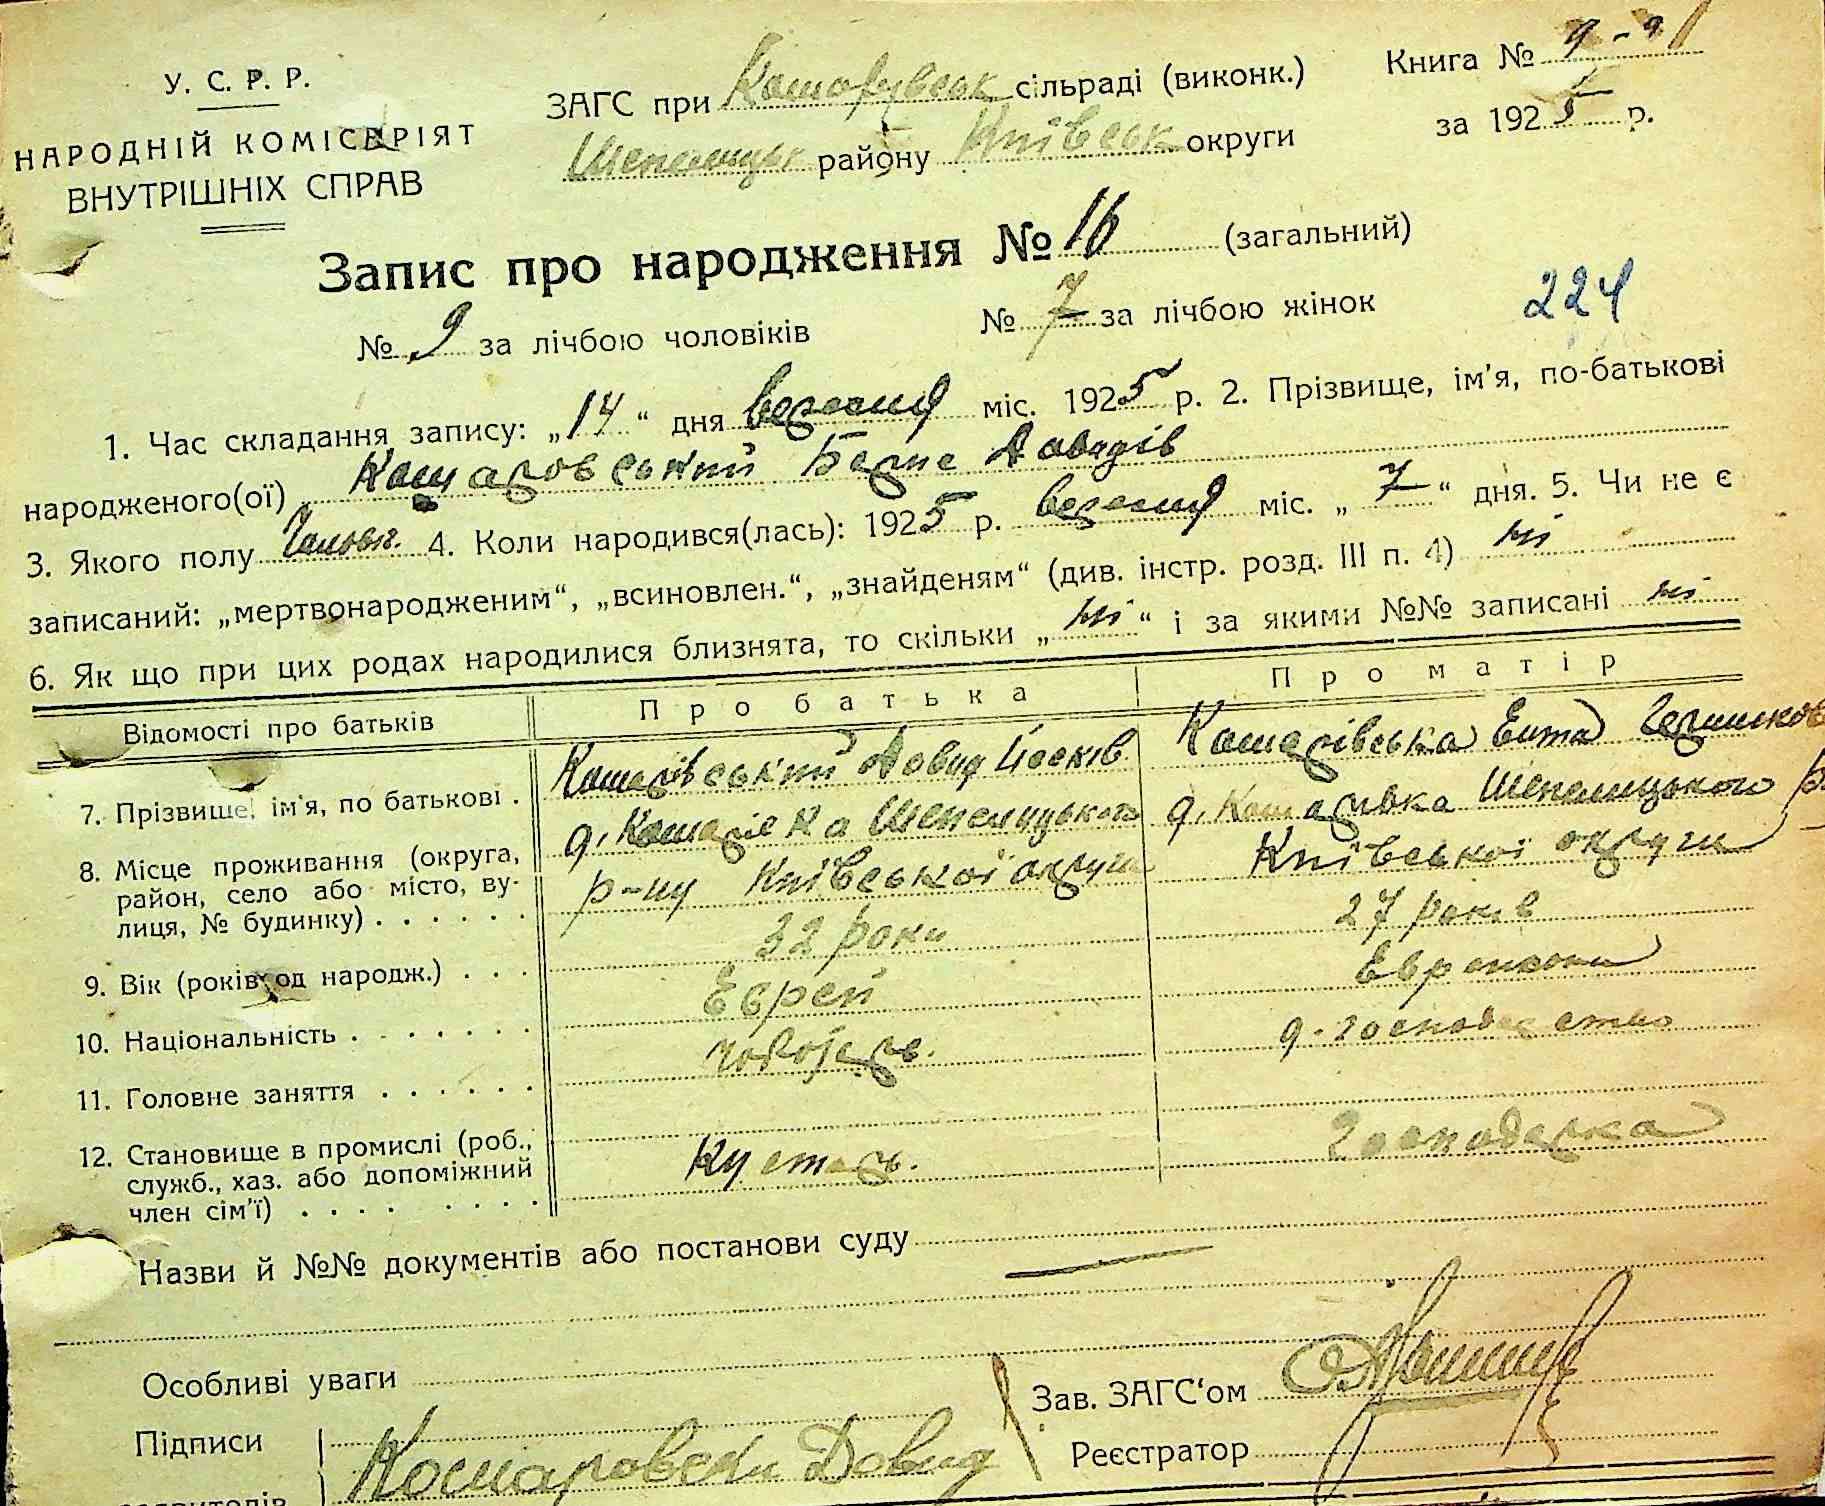 У. С. Р. Р.
НАРОДНІЙ КОМІСЕРІЯТ
ВНУТРІШНІХ СПРАВ
ЗАГС при Кошарувськ сільраді (виконк.)
Шепелицьк району Київськ округи
Книга №
за 1925 р.
Запис про народження № 16 (загальний)
№ 9 за лічбою чоловіків № 7 за лічбою жінок
224
1. Час складання запису: „14“ дня вересня міс. 1925 р. 2. Прізвище, ім'я, по-батькові
народженого(ої) Кошаровський Берко Довидів
3. Якого полу Чоловіч. 4. Коли народився(лась): 1925 р. вересня міс. „7“ дня. 5. Чи не є
записаний: „мертвонародженим“, „всиновлен.“, „знайденям“ (див. інстр. розд. III п. 4) ні
6. Як що при цих родах народилися близнята, то скільки „ні“ і за якими №№ записані ні
Відомості про батьків Про батька Про матір
7. Прізвище, ім'я, по батькові . Кошарівський Довид Йоськів Кошарівська Ента
8. Місце проживання (округа, район, село або місто, вулиця, № будинку) . . . . . . д. Кошарівка Шепелицького р-ну Київської округи д. Кошарівка Шепелицького Київської округи
9. Вік (років од народж.) . . . 32 роки 27 років
10. Національність . . . . . . . Еврей Еврейка
11. Головне заняття . . . . . . д. господарство
12. Становище в промислі (роб., служб., хаз. або допоміжний член сім'ї) . . . . . . . . Кустарь. Господарка
Назви й №№ документів або постанови суду
Особливі уваги
Зав. ЗАГС'ом
Підписи Кошаровски Довид
Реєстратор